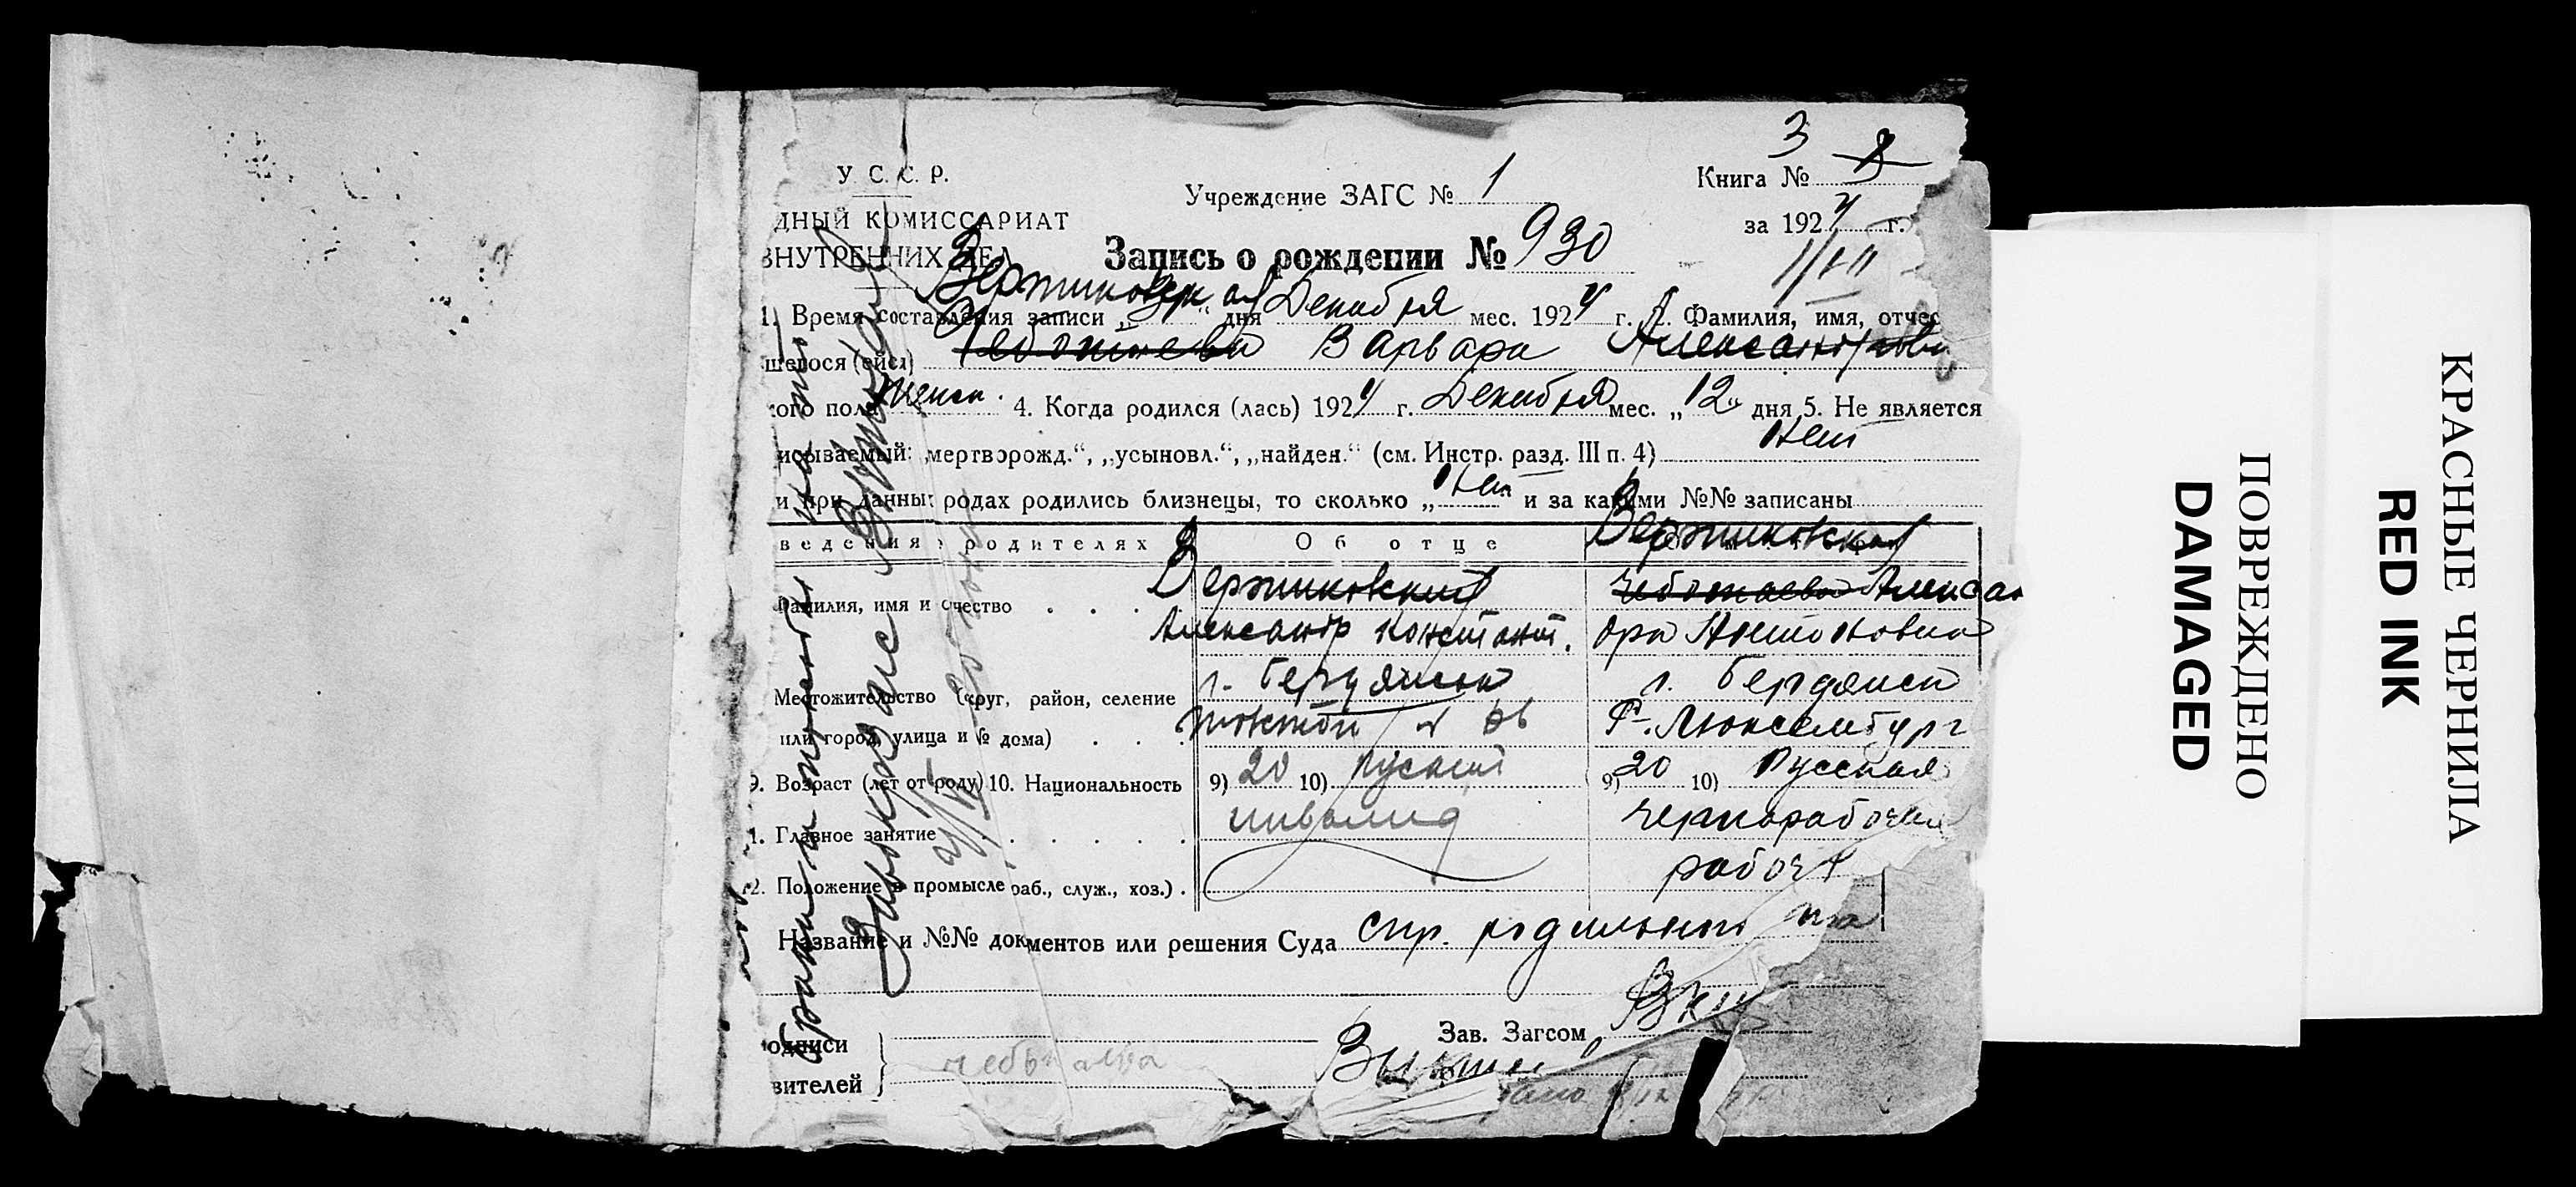 3 8
У. С. С. Р.
Учреждение ЗАГС № 1
Книга №
ДНЫЙ КОМИССАРИАТ
за 1924 г.
ВНУТРЕННИХ ДЕЛ
Запись о рождении № 930
Вертиковская
1. Время составления записи „ “ дня Декабря мес. 1924 г. 2. Фамилия, имя, отчес
шегося (ейся) Чеботаева Варвара Александровна
кого пола женск. 4. Когда родился (лась) 1924 г. Декабря мес. „12“ дня 5. Не является
исываемый: „мертворожд.“, „усыновл.“, „найден.“ (см. Инстр. разд. III п. 4) Нет
и при данных родах родились близнецы, то сколько „Нет“ и за какими №№ записаны
ведения о родителях Об отце
Вертиковская
Фамилия, имя и очество
Вертиковский
Чеботаева Алексан
Александр Констант.
дра Антоновна
Местожительство (округ, район, селение
г. Бердянск
г. Бердянск
или город, улица и № дома)
Р. Люксембург
9. Возраст (лет от роду) 10. Национальность 9) 20 10) Русский 9) 20 10) Русская
1. Главное занятие инвалид Чернорабочая
2. Положение в промысле раб., служ., хоз.) работ
Название и №№ документов или решения Суда спр. родильного
Зав. Загсом
одписи
вителей
чеботаева
КРАСНЫЕ ЧЕРНИЛА
RED INK
ПОВРЕЖДЕНО
DAMAGED